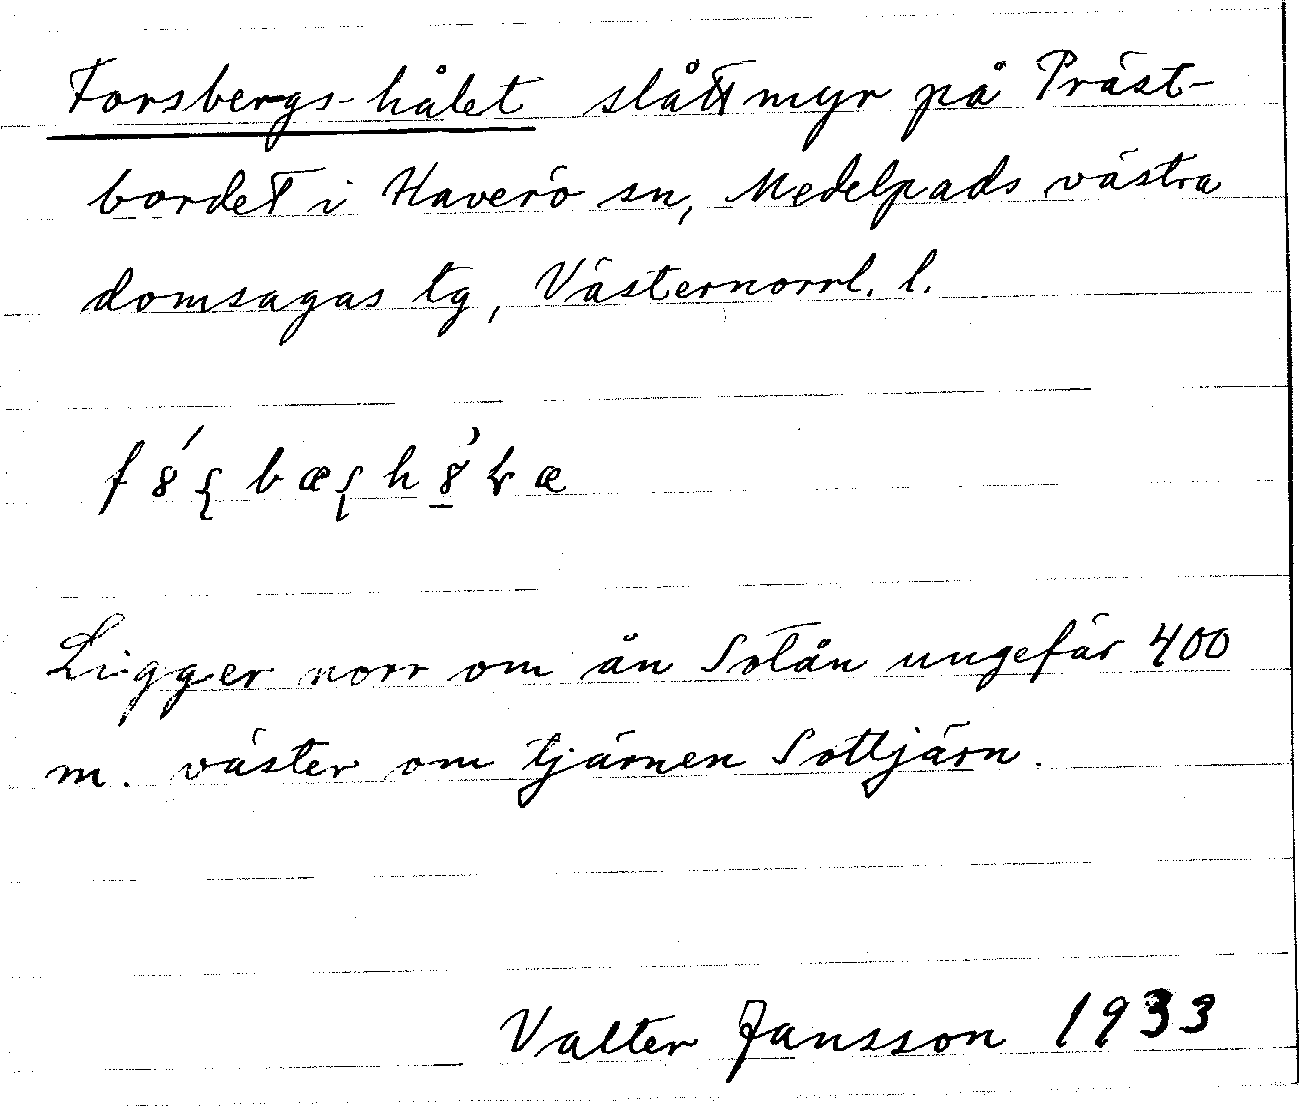 Forsbergs-hålet slåttmyr på Präst-
bordet i Haverö sn, Medelpads västra
domsagas tg, Västernorrl. l.
Ligger norr om ån Sotån ungefär 400
m. väster om tjärnen Sottjärn.
Valter Jansson 1933